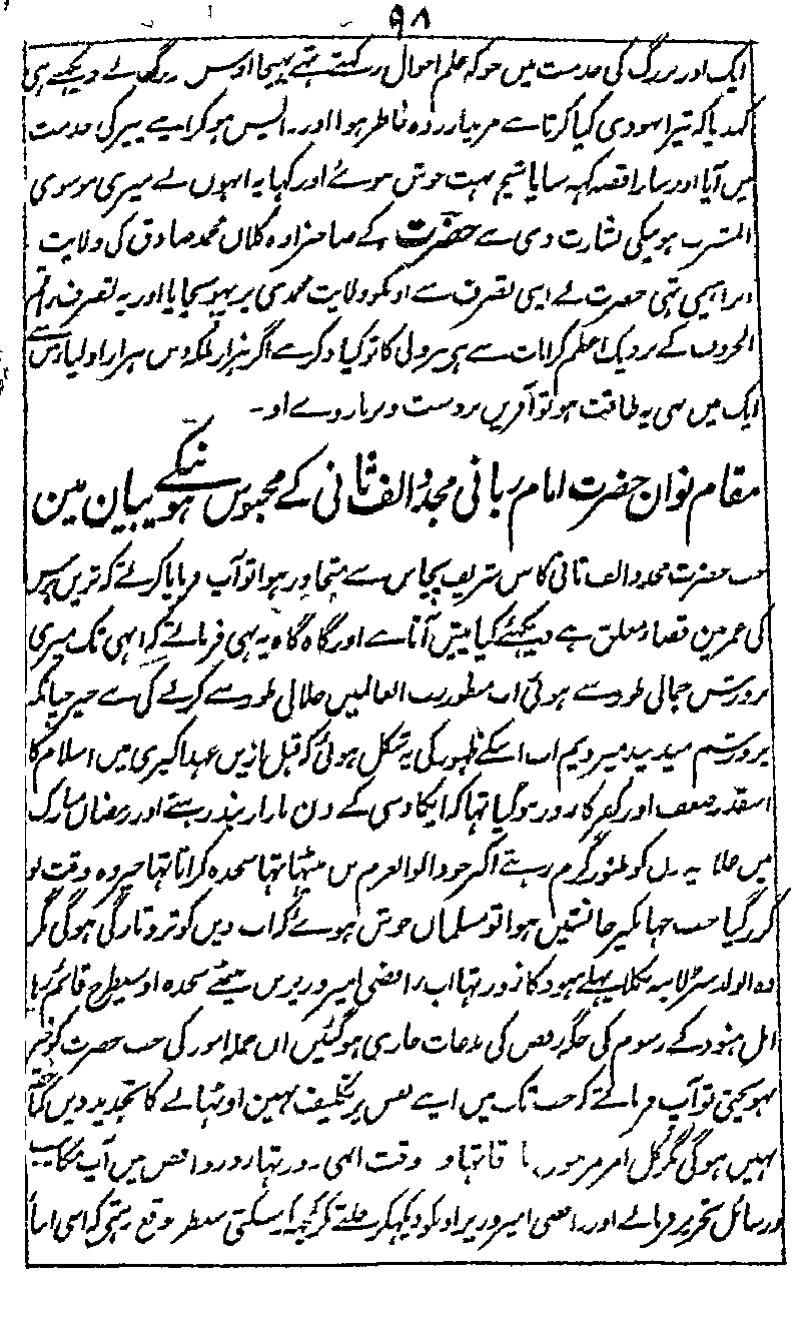 ۹۸
ایک اور بزرگ کی خدمت میں جو کہ علم احوال رکہتے تہے بہیجا اوس بزرگ نے دیکہتے ہی
کہدیا کہ تیرا یہودی کیا کرتا ہے مرید آزردہ خاطر ہوا اور واپس ہو کر اپنے پیر کی خدمت
میں آیا اور سارا قصہ کہہ سنایا شیخ بہت خوش ہوئے اور کہا یہ انہوں نے میری موسوی
المشرب ہونیکی بشارت دی ہے حضرت کے صاحبزادہ کلاں محمد صادق کی ولایت
ابراہیمی تہی حضرت نے اپنی تصرف سے اونکو ولایت محمدی پر پہونچایا اور یہ تصرف راقم
الحروف کے نزدیک اعظم کرامات سے ہے ہر ولی کا تو کیا ذکر ہے اگر ہزار بلکہ دس ہزار اولیا ہوں
ایک میں بہی یہ طاقت ہو تو آفریں بر دست و بر بازوے او۔
مقام نوان حضرت امام ربانی مجدد الف ثانی کے محبوس ہونیکے بیان مین
جب حضرت مجدد الف ثانی کا سن شریف پچاس سے متجاوز ہوا تو آپ فرمایا کرتے کہ تریں برس
کی عمر مین قضاء معلق ہے دیکہئے کیا پیش آتا ہے اور گاہ گاہ یہ بہی فرماتے کہ ابہی تک میری
پرورش جمالی طور سے ہوئی اب منظور رب العالمیں جلالی طور سے کرنے کی ہے خیر چنانکہ
پرورشم میدہد میرویم اب اسکے ظہور کی یہ شکل ہوئی کہ قبل ازیں عہد اکبری میں اسلام کا
اسقدر ضعف اور کفر کا زور ہوگیا تہا کہ ایکادسی کے دن بازار بند رہتے اور رمضان مبارک
میں علانیہ دن کو طنور گرم رہتے اکبر خود اولوالعزم بن بیٹہا تہا سجدہ کراتا تہا خیر وہ وقت تو
گزر گیا جب جہانگیر جانشیں ہوا تو مسلماں خوش ہوئے کہ اب دیں کو تروتازگی ہوگی مگر
وہ الولد سر لابیہ نکلا پہلے ہنود کا زور تہا اب رافضی امیر وزیر بن بیٹہے سجدہ اوسیطرح قائم رہا
اہل ہنود کے رسوم کی جگہ رفض کی بدعات جاری ہوگئیں ان جملہ امور کی جب حضرت کو خبر
پہونچتی تو آپ فرماتے کہ جب تک میں اپنے نفس پر تکلیف نہین اوٹہانے کا تجدید دیں کما حقہ
نہیں ہوگی مگر کل امر مرہون باوقاتہا وقت الہی دور تہا رد روافض میں آپ مکاتیب
ورسائل تحریر فرماتے اور رافضی امیر وزیر اونکو دیکہکر جلتے مگر کچہہ کر نسکتے منتظر وقع رہتے کہ اسی اثنا